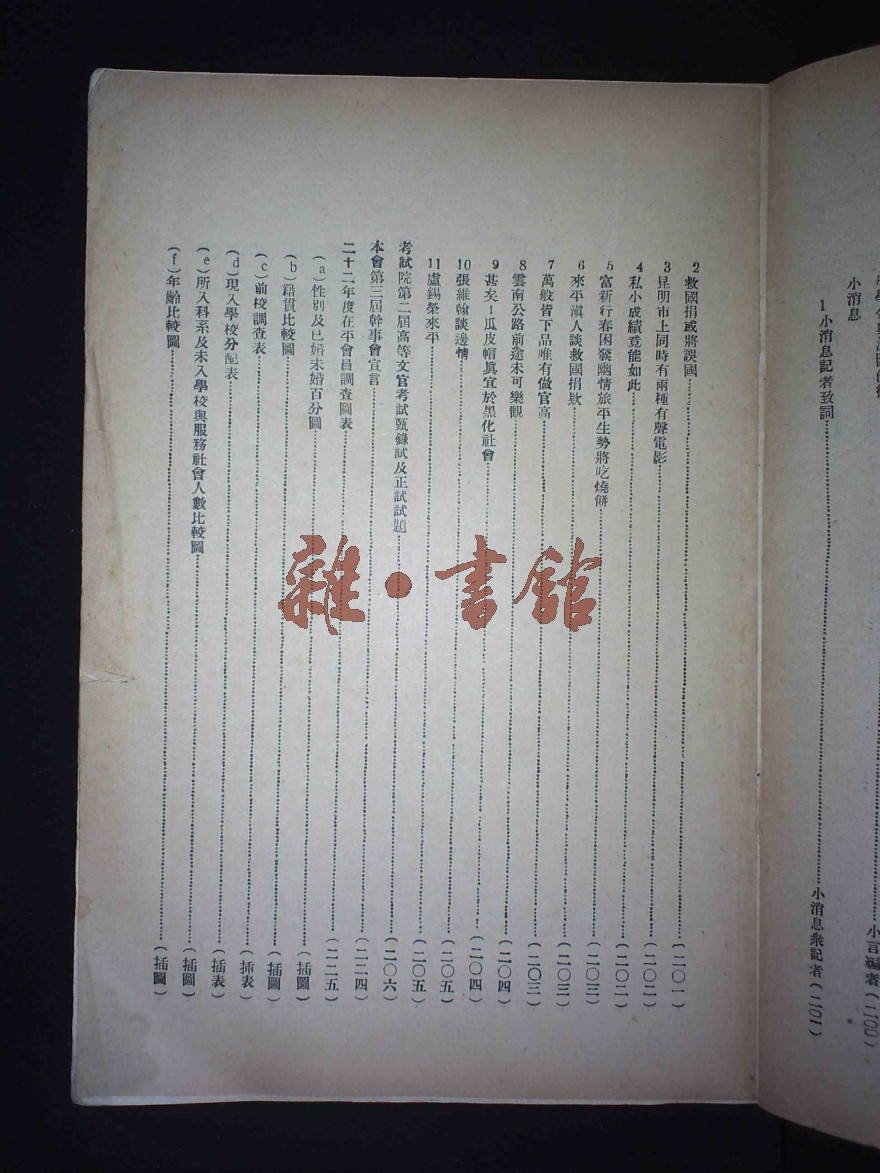 小消息
1 小消息記者致詞……小消息衆記者(二〇一)
小言編者(二〇〇)
2 救國捐或將誤國……(二〇一)
3 昆明市上同時有兩種有聲電影……(二〇二)
4 私小成績竟能如此……(二〇二)
5 富新行春困發幽情旅平生勢將吃燒餅……(二〇三)
6 來平滇人談救國捐欵……(二〇三)
7 萬般皆下品唯有做官高……(二〇三)
8 雲南公路前途未可樂觀……(二〇四)
9 甚矣!瓜皮帽眞宜於黑化社會……(二〇四)
10 張維翰談邊情……(二〇五)
11 盧錫榮來平……(二〇五)
考試院第二屆高等文官考試甄錄試及正試試題……(二〇六)
本會第三屆幹事會宣言……(二二四)
二十二年度在平會員調查圖表……(二二五)
(a)性別及已婚未婚百分圖……(插圖)
(b)籍貫比較圖……(插圖)
(c)前校調查表……(插表)
(d)現入學校分配表……(插表)
(e)所入科系及未入學校與服務社會人數比較圖……(插圖)
(f)年齡比較圖……(插圖)
雜·書館